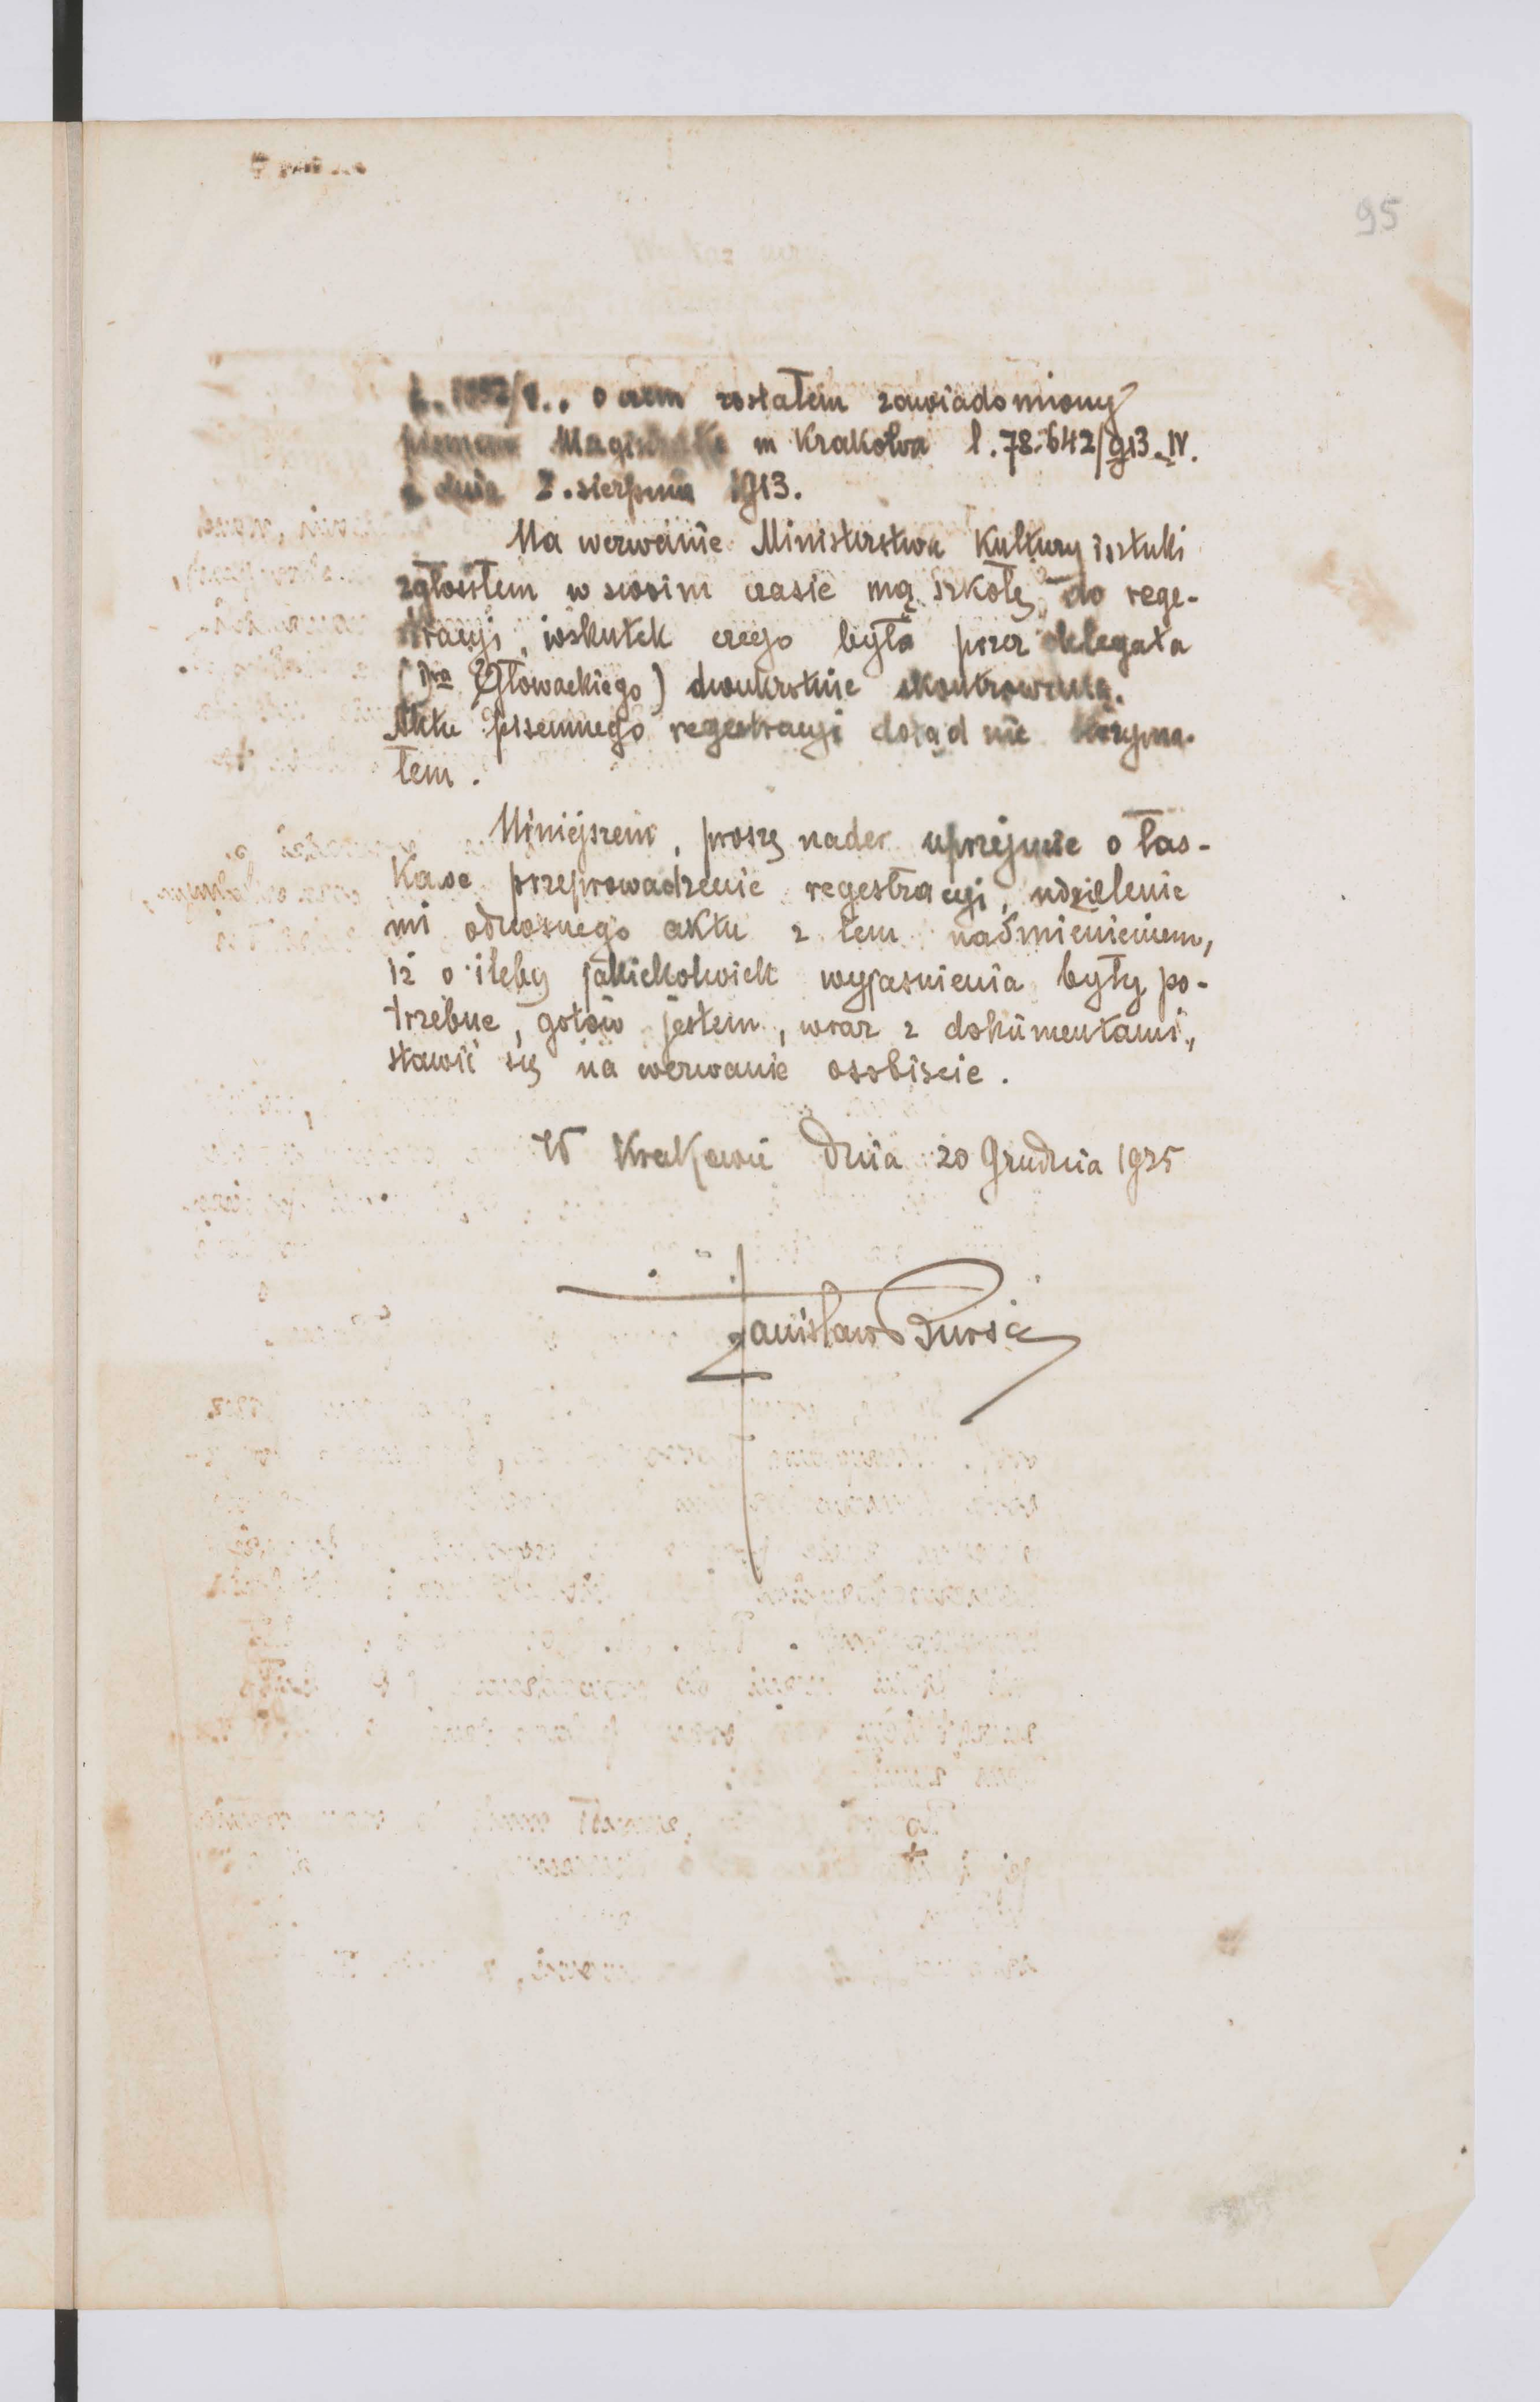 95
o czem zostałem zawiadomiony
pismem Magistratu m Krakowa l. 78.642/913_IV.
z dnia 2. sierpnia 1913.
Na wezwanie Ministerstwa Kultury i sztuki
zgłosiłem w swoim czasie mą szkołę do rege-
stracyi, wskutek czego była przez delegata
(Dra Głowackiego) dwukrotnie skontrowaną.
Aktu pisemnego regestracyi dotąd nie otrzyma-
łem.
Niniejszem, proszę nader uprzejmie o łas-
kawe przeprowadzenie regestracyi, udzielenie
mi odnośnego aktu z tem nadmienieniem,
iż o ileby jakiekolwiek wyjaśnienia były po-
trzebne, gotów jestem, wraz z dokumentami,
stawić się na wezwanie osobiście.
W Krakowie dnia 20 Grudnia 1925
Stanisław Bursa